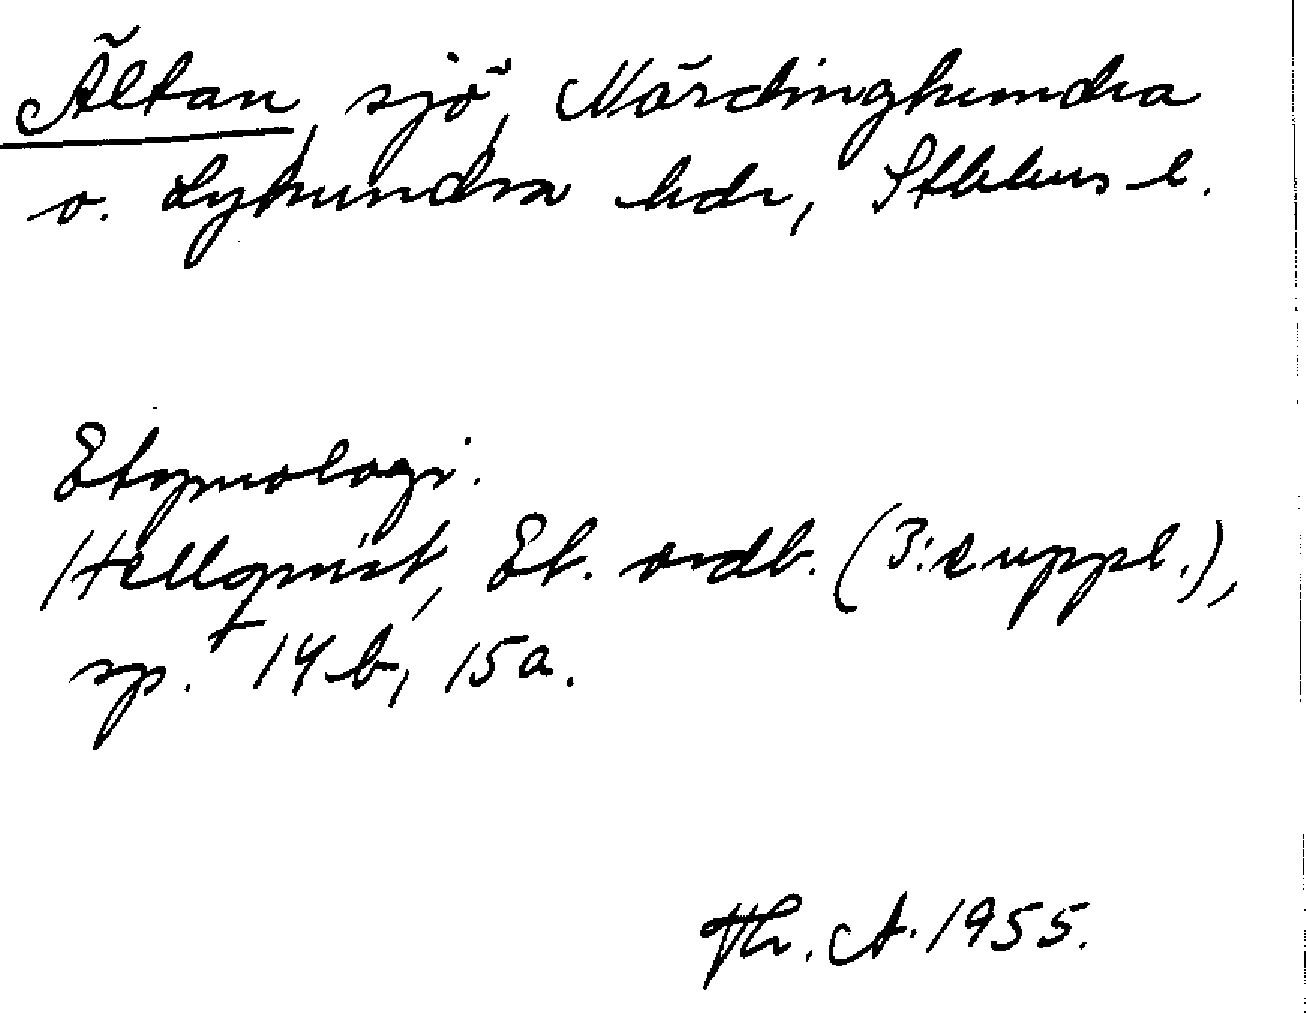 Ältan, sjö, Närdinghundra
o. Lyhundra hdr, Sthlms l.
Etymologi.
Hellquist, Et. ordb. (3:e uppl.),
sp. 14 b, 15 a.
Th. A. 1955.